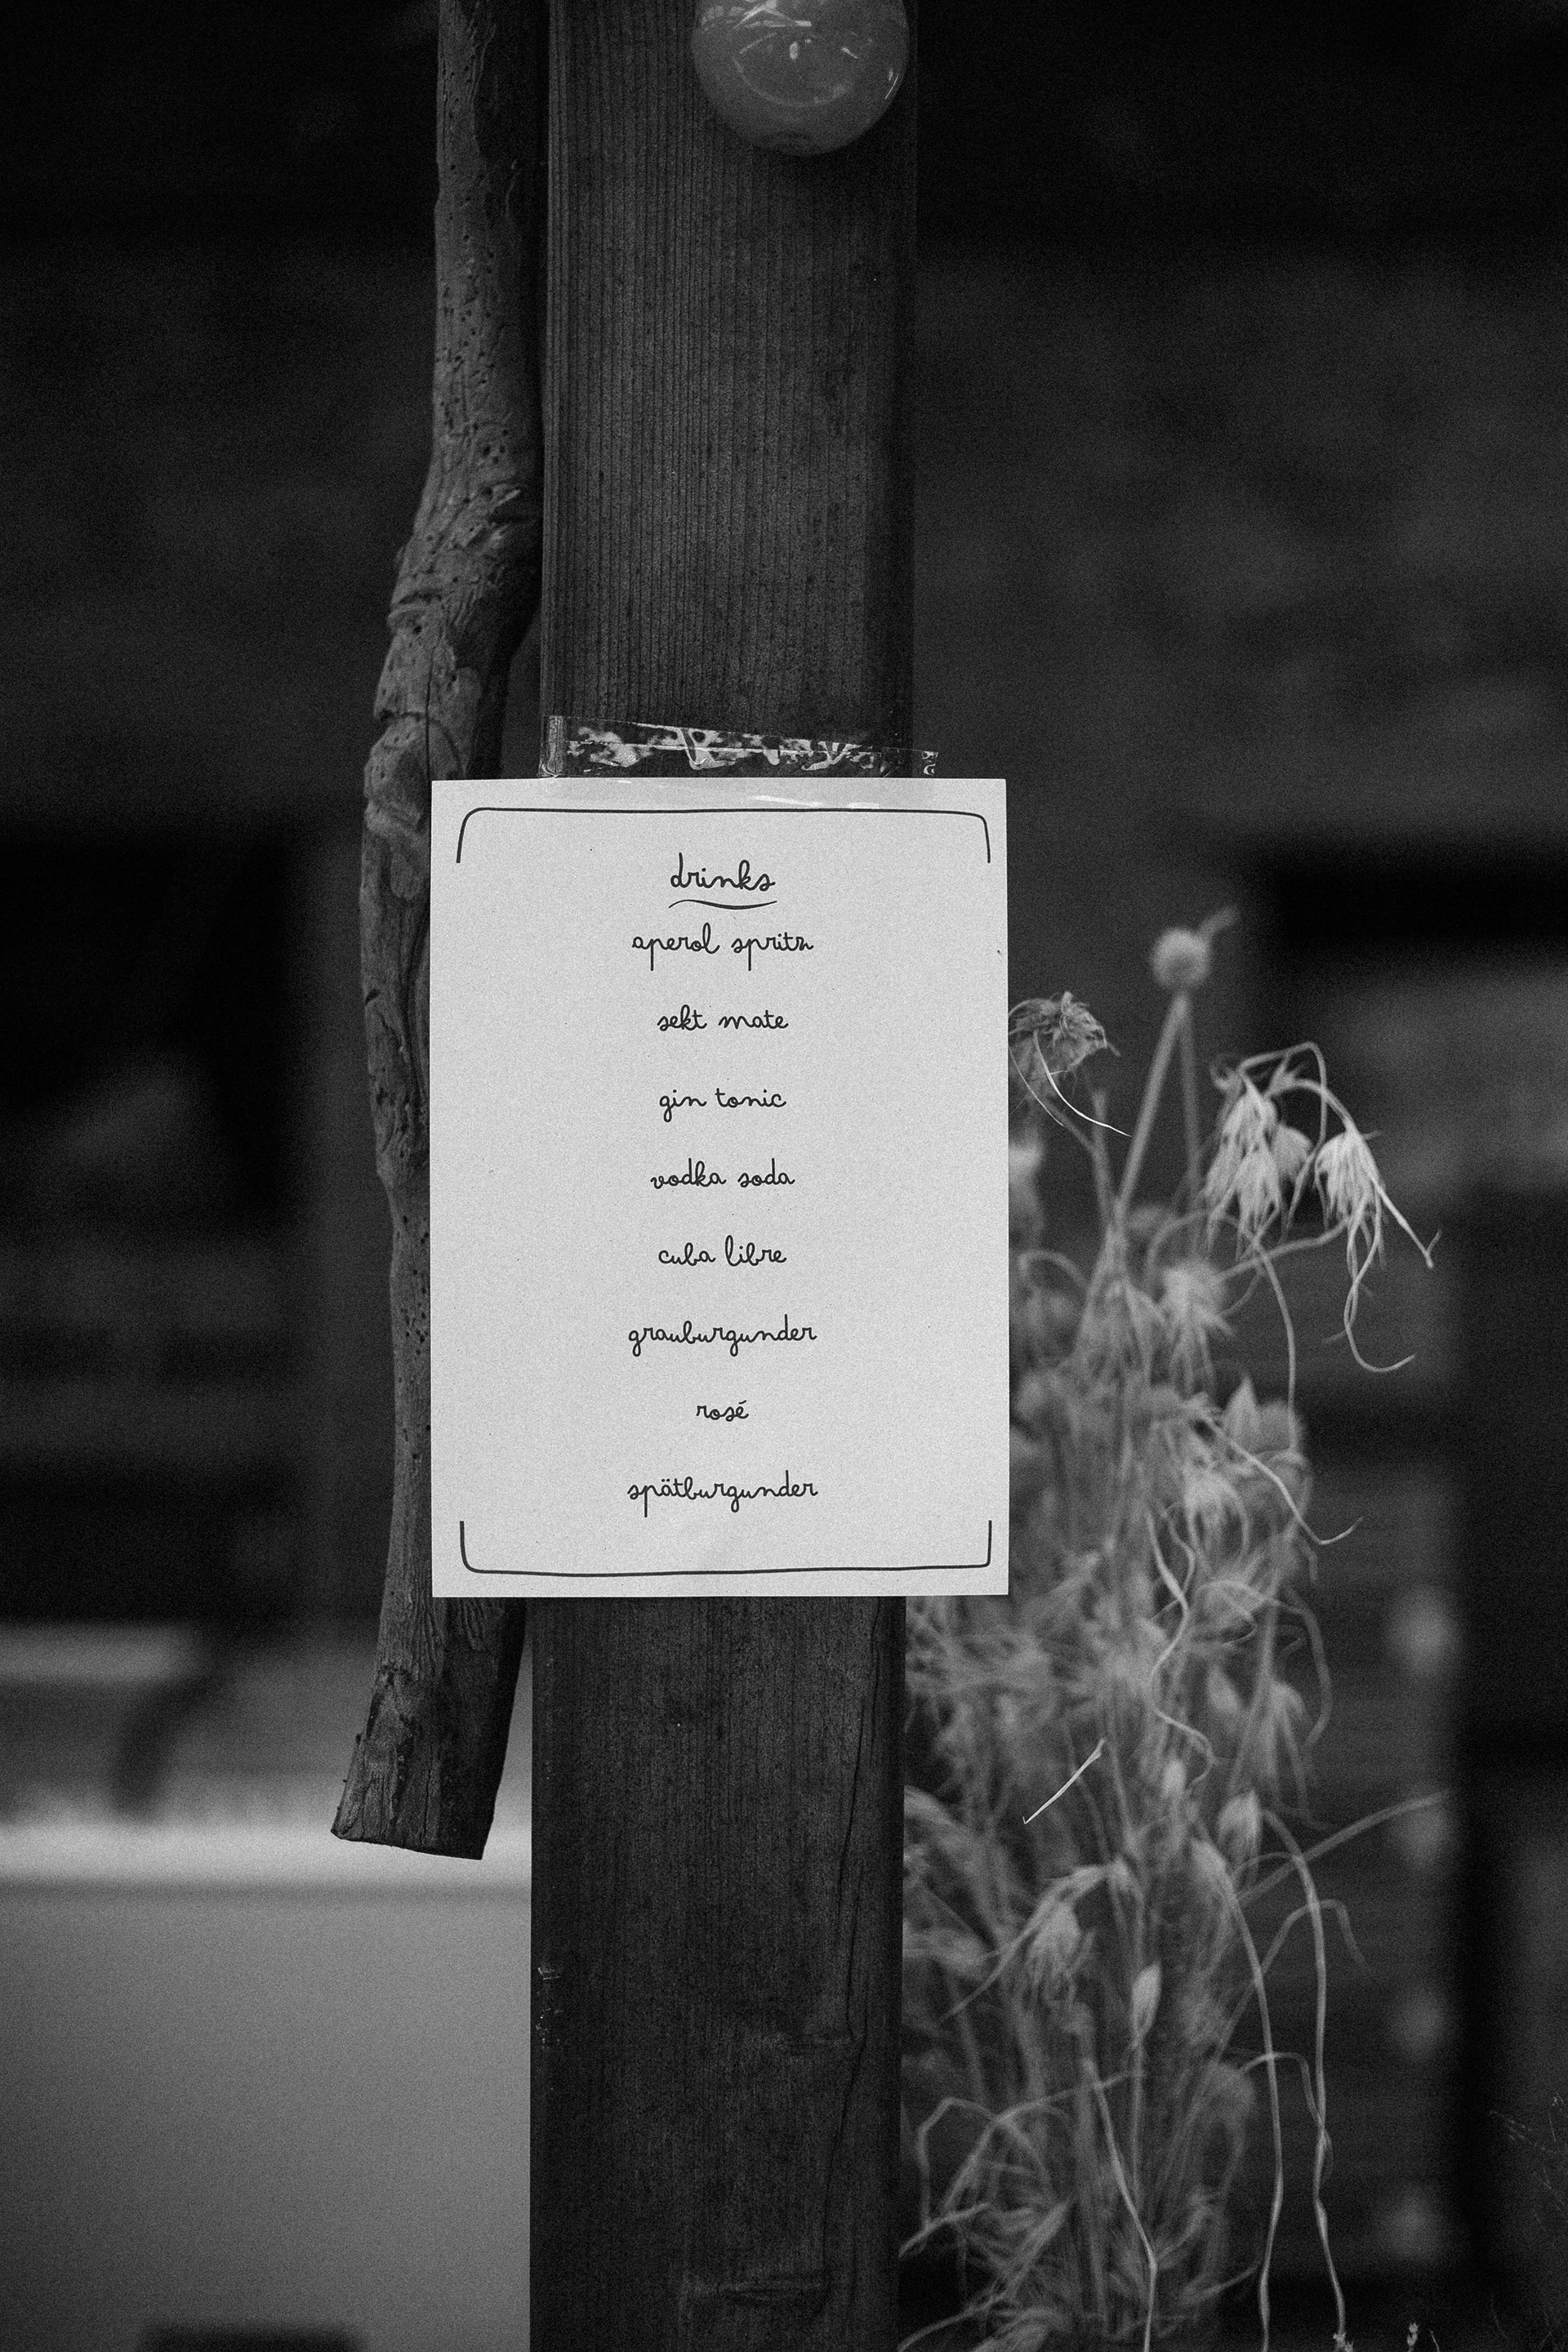 drinks
aperol spritz
sekt mate
gin tonic
vodka soda
cuba libre
grauburgunder
rosé
spätburgunder